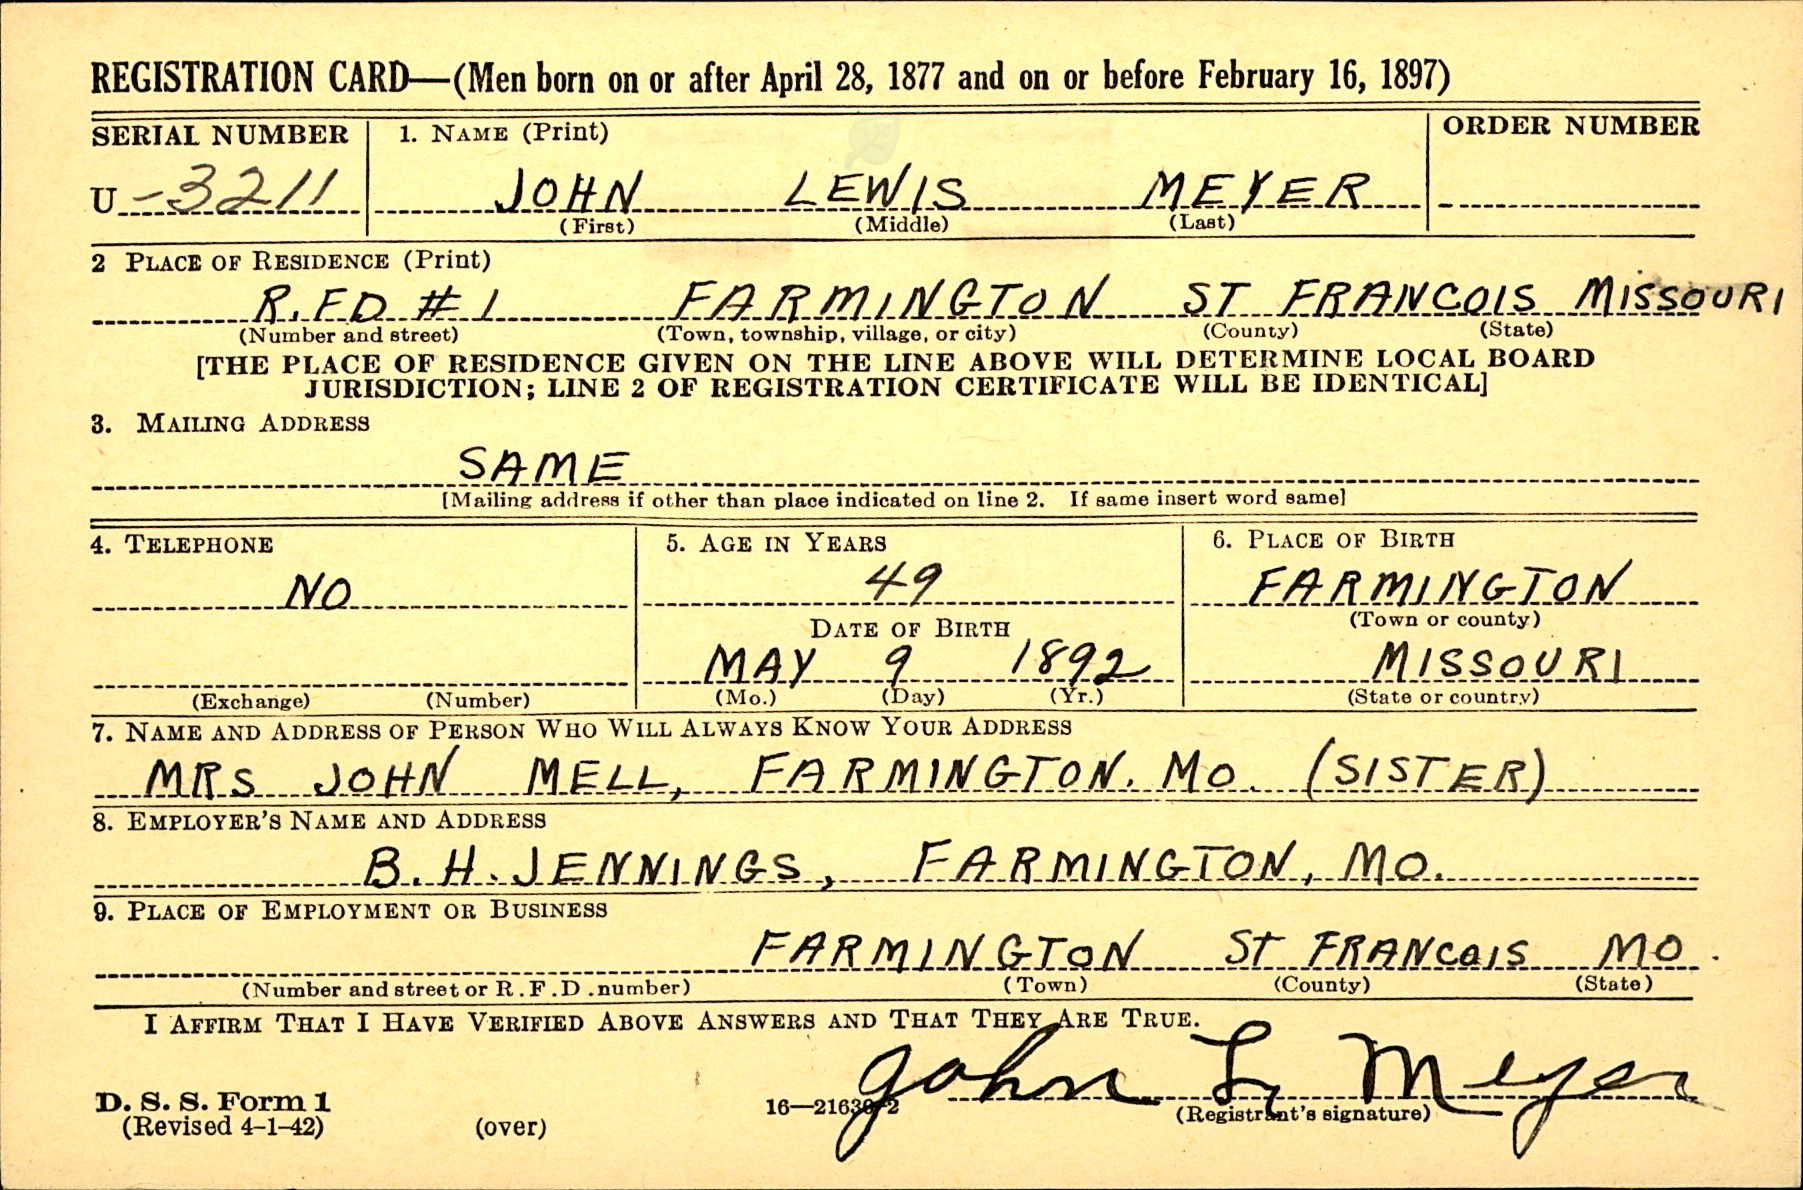 REGISTRATION CARD—(Men born on or after April 28, 1877 and on or before February 16, 1897)
SERIAL NUMBER 1. NAME (Print) ORDER NUMBER
U -3211 JOHN LEWIS MEYER
(First) (Middle) (Last)
2 PLACE OF RESIDENCE (Print)
R.F.D # 1 FARMINGTON ST FRANCOIS MISSOURI
(Number and street) (Town, township, village, or city) (County) (State)
[THE PLACE OF RESIDENCE GIVEN ON THE LINE ABOVE WILL DETERMINE LOCAL BOARD
JURISDICTION; LINE 2 OF REGISTRATION CERTIFICATE WILL BE IDENTICAL]
3. MAILING ADDRESS
SAME
[Mailing address if other than place indicated on line 2. If same insert word same]
4. TELEPHONE 5. AGE IN YEARS 6. PLACE OF BIRTH
NO 49 FARMINGTON
(Town or county)
DATE OF BIRTH
MAY 9 1892 MISSOURI
(Exchange) (Number) (Mo.) (Day) (Yr.) (State or country)
7. NAME AND ADDRESS OF PERSON WHO WILL ALWAYS KNOW YOUR ADDRESS
MRS JOHN MELL, FARMINGTON. MO. (SISTER)
8. EMPLOYER'S NAME AND ADDRESS
B. H. JENNINGS, FARMINGTON, MO.
9. PLACE OF EMPLOYMENT OR BUSINESS
FARMINGTON ST FRANCOIS MO.
(Number and street or R.F.D. number) (Town) (County) (State)
I AFFIRM THAT I HAVE VERIFIED ABOVE ANSWERS AND THAT THEY ARE TRUE.
John L. Meyer
D. S. S. Form 1 16—21630-2 (Registrant's signature)
(Revised 4-1-42) (over)